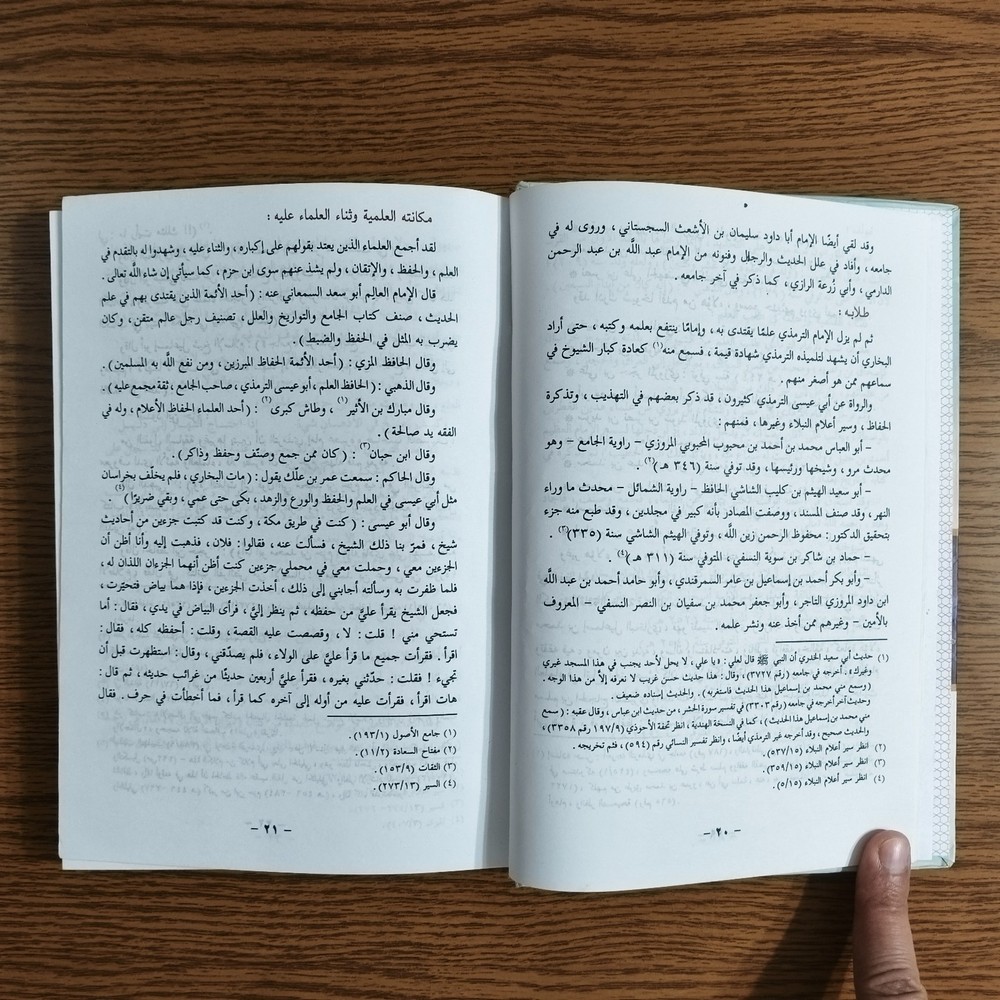 وقد لقي أيضًا الإمام أبا داود سليمان بن الأشعث السجستاني ، وروى له في
جامعه ، وأفاد في علل الحديث والرجال وفنونه من الإمام عبد اللَّه بن عبد الرحمن
الدارمي ، وأبي زُرعة الرازي ، كما ذكر في آخر جامعه .
طلابه :
ثم لم يزل الإمام الترمذي علمًا يقتدى به ، وإمامًا ينتفع بعلمه وكتبه ، حتى أراد
البخاري أن يشهد لتلميذه الترمذي شهادة قيمة ، فسمع منه(١) كعادة كبار الشيوخ في
سماعهم ممن هو أصغر منهم .
والرواة عن أبي عيسى الترمذي كثيرون ، قد ذكر بعضهم في التهذيب ، وتذكرة
الحفاظ ، وسير أعلام النبلاء وغيرها ، فمنهم :
– أبو العباس محمد بن أحمد بن محبوب المحبوبي المروزي – راوية الجامع – وهو
محدث مرو ، وشيخها ورئيسها ، وقد توفي سنة (٣٤٦ هـ)(٢) .
– أبو سعيد الهيثم بن كليب الشاشي الحافظ – راوية الشمائل – محدث ما وراء
النهر ، وقد صنف المسند ، ووصفت المصادر بأنه كبير في مجلدين ، وقد طبع منه جزء
بتحقيق الدكتور : محفوظ الرحمن زين اللَّه ، وتوفي الهيثم الشاشي سنة (٣٣٥)(٣) .
– حماد بن شاكر بن سوية النسفي ، المتوفي سنة (٣١١ هـ)(٤) .
– وأبو بكر أحمد بن إسماعيل بن عامر السمرقندي ، وأبو حامد أحمد بن عبد اللَّه
ابن داود المروزي التاجر ، وأبو جعفر محمد بن سفيان بن النضر النسفي – المعروف
بالأمين – وغيرهم ممن أخذ عنه ونشر علمه .
(١) حديث أبي سعيد الخدري أن النبي ﷺ قال لعلي : «يا علي ، لا يحل لأحد يجنب في هذا المسجد غيري
وغيرك» . أخرجه في جامعه (رقم ٣٧٢٧) ، وقال : هذا حديث حسن غريب لا نعرفه إلاّ من هذا الوجه .
( وسمع مني محمد بن إسماعيل هذا الحديث فاستغربه ) . والحديث إسناده ضعيف .
وحديث آخر أخرجه في جامعه (رقم ٣٣٠٣) في تفسير سورة الحشر ، من حديث ابن عباس ، وقال عقبه : (سمع
مني محمد بن إسماعيل هذا الحديث) ، كما في النسخة الهندية ، انظر تحفة الأحوذي (١٩٧/٩ رقم ٣٣٥٨) ،
والحديث صحيح ، وقد أخرجه غير الترمذي أيضًا ، وانظر تفسير النسائي رقم (٥٩٤) ، فثم تخريجه .
(٢) انظر سير أعلام النبلاء (٥٣٧/١٥) .
(٣) انظر سير أعلام النبلاء (٣٥٩/١٥) .
(٤) انظر سير أعلام النبلاء (٥/١٥) .
– ٢٠ –
مكانته العلمية وثناء العلماء عليه :
لقد أجمع العلماء الذين يعتد بقولهم على إكباره ، والثناء عليه ، وشهدوا له بالتقدم في
العلم ، والحفظ ، والإتقان ، ولم يشذ عنهم سوى ابن حزم ، كما سيأتي إن شاء اللَّه تعالى .
قال الإمام العالِم أبو سعد السمعاني عنه : (أحد الأئمة الذين يقتدى بهم في علم
الحديث ، صنف كتاب الجامع والتواريخ والعلل ، تصنيف رجل عالم متقن ، وكان
يضرب به المثل في الحفظ والضبط ) .
وقال الحافظ المزي : ( أحد الأئمة الحفاظ المبرزين ، ومن نفع اللَّه به المسلمين ) .
وقال الذهبي : ( الحافظ العلم ، أبو عيسى الترمذي ، صاحب الجامع ، ثقة مجمع عليه ) .
وقال مبارك بن الأثير(١) ، وطاش كبرى(٢) : ( أحد العلماء الحفاظ الأعلام ، وله في
الفقه يد صالحة ) .
وقال ابن حبان(٣) : ( كان ممن جمع وصنّف وحفظ وذاكر ) .
وقال الحاكم : سمعت عمر بن علّك يقول : (مات البخاري ، فلم يخلّف بخراسان
مثل أبي عيسى في العلم والحفظ والورع والزهد ، بكى حتى عمي ، وبقي ضريرًا )(٤) .
وقال أبو عيسى : ( كنت في طريق مكة ، وكنت قد كتبت جزءين من أحاديث
شيخ ، فمرّ بنا ذلك الشيخ ، فسألت عنه ، فقالوا : فلان ، فذهبت إليه وأنا أظن أن
الجزءين معي ، وحملت معي في محملي جزءين كنت أظن أنهما الجزءان اللذان له ،
فلما ظفرت به وسألته أجابني إلى ذلك ، أخذت الجزءين ، فإذا هما بياض فتحيّرت ،
فجعل الشيخ يقرأ عليَّ من حفظه ، ثم ينظر إليَّ ، فرأى البياض في يدي ، فقال : أما
تستحي مني ! قلت : لا ، وقصصت عليه القصة ، وقلت : أحفظه كله ، فقال :
اقرأ . فقرأت جميع ما قرأ عليَّ على الولاء ، فلم يصدّقني ، وقال : استظهرت قبل أن
تجيء ! فقلت : حدّثني بغيره ، فقرأ عليَّ أربعين حديثًا من غرائب حديثه ، ثم قال :
هات اقرأ ، فقرأت عليه من أوله إلى آخره كما قرأ ، فما أخطأت في حرف . فقال
(١) جامع الأصول (١٩٣/١) .
(٢) مفتاح السعادة (١١/٢) .
(٣) الثقات (١٥٣/٩) .
(٤) السير (٢٧٣/١٣) .
– ٢١ –